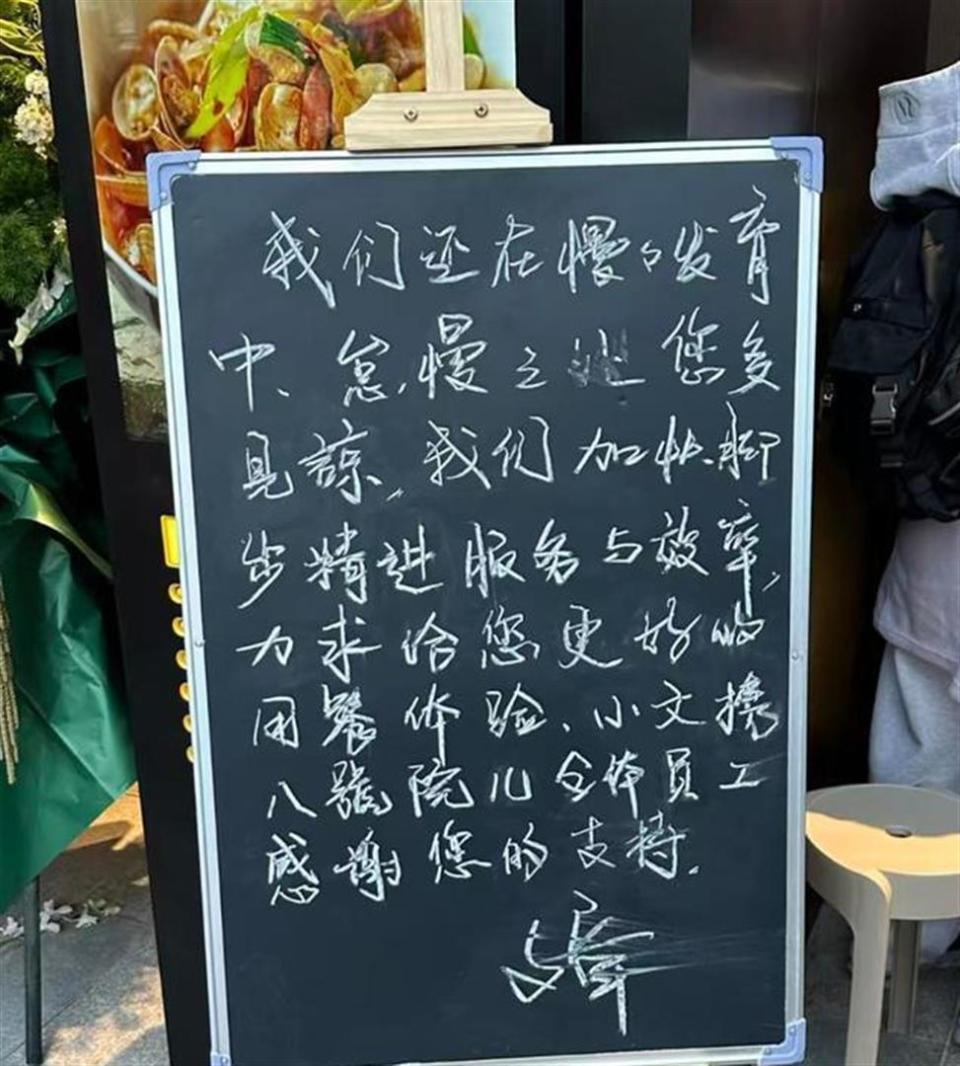 我们还在慢々发育
中、怠慢之处您多
見諒,我们加快脚
步精进服务与效率,
力求给您更好的
用餐体验、小文携
八號院儿全体員工
感谢您的支持.